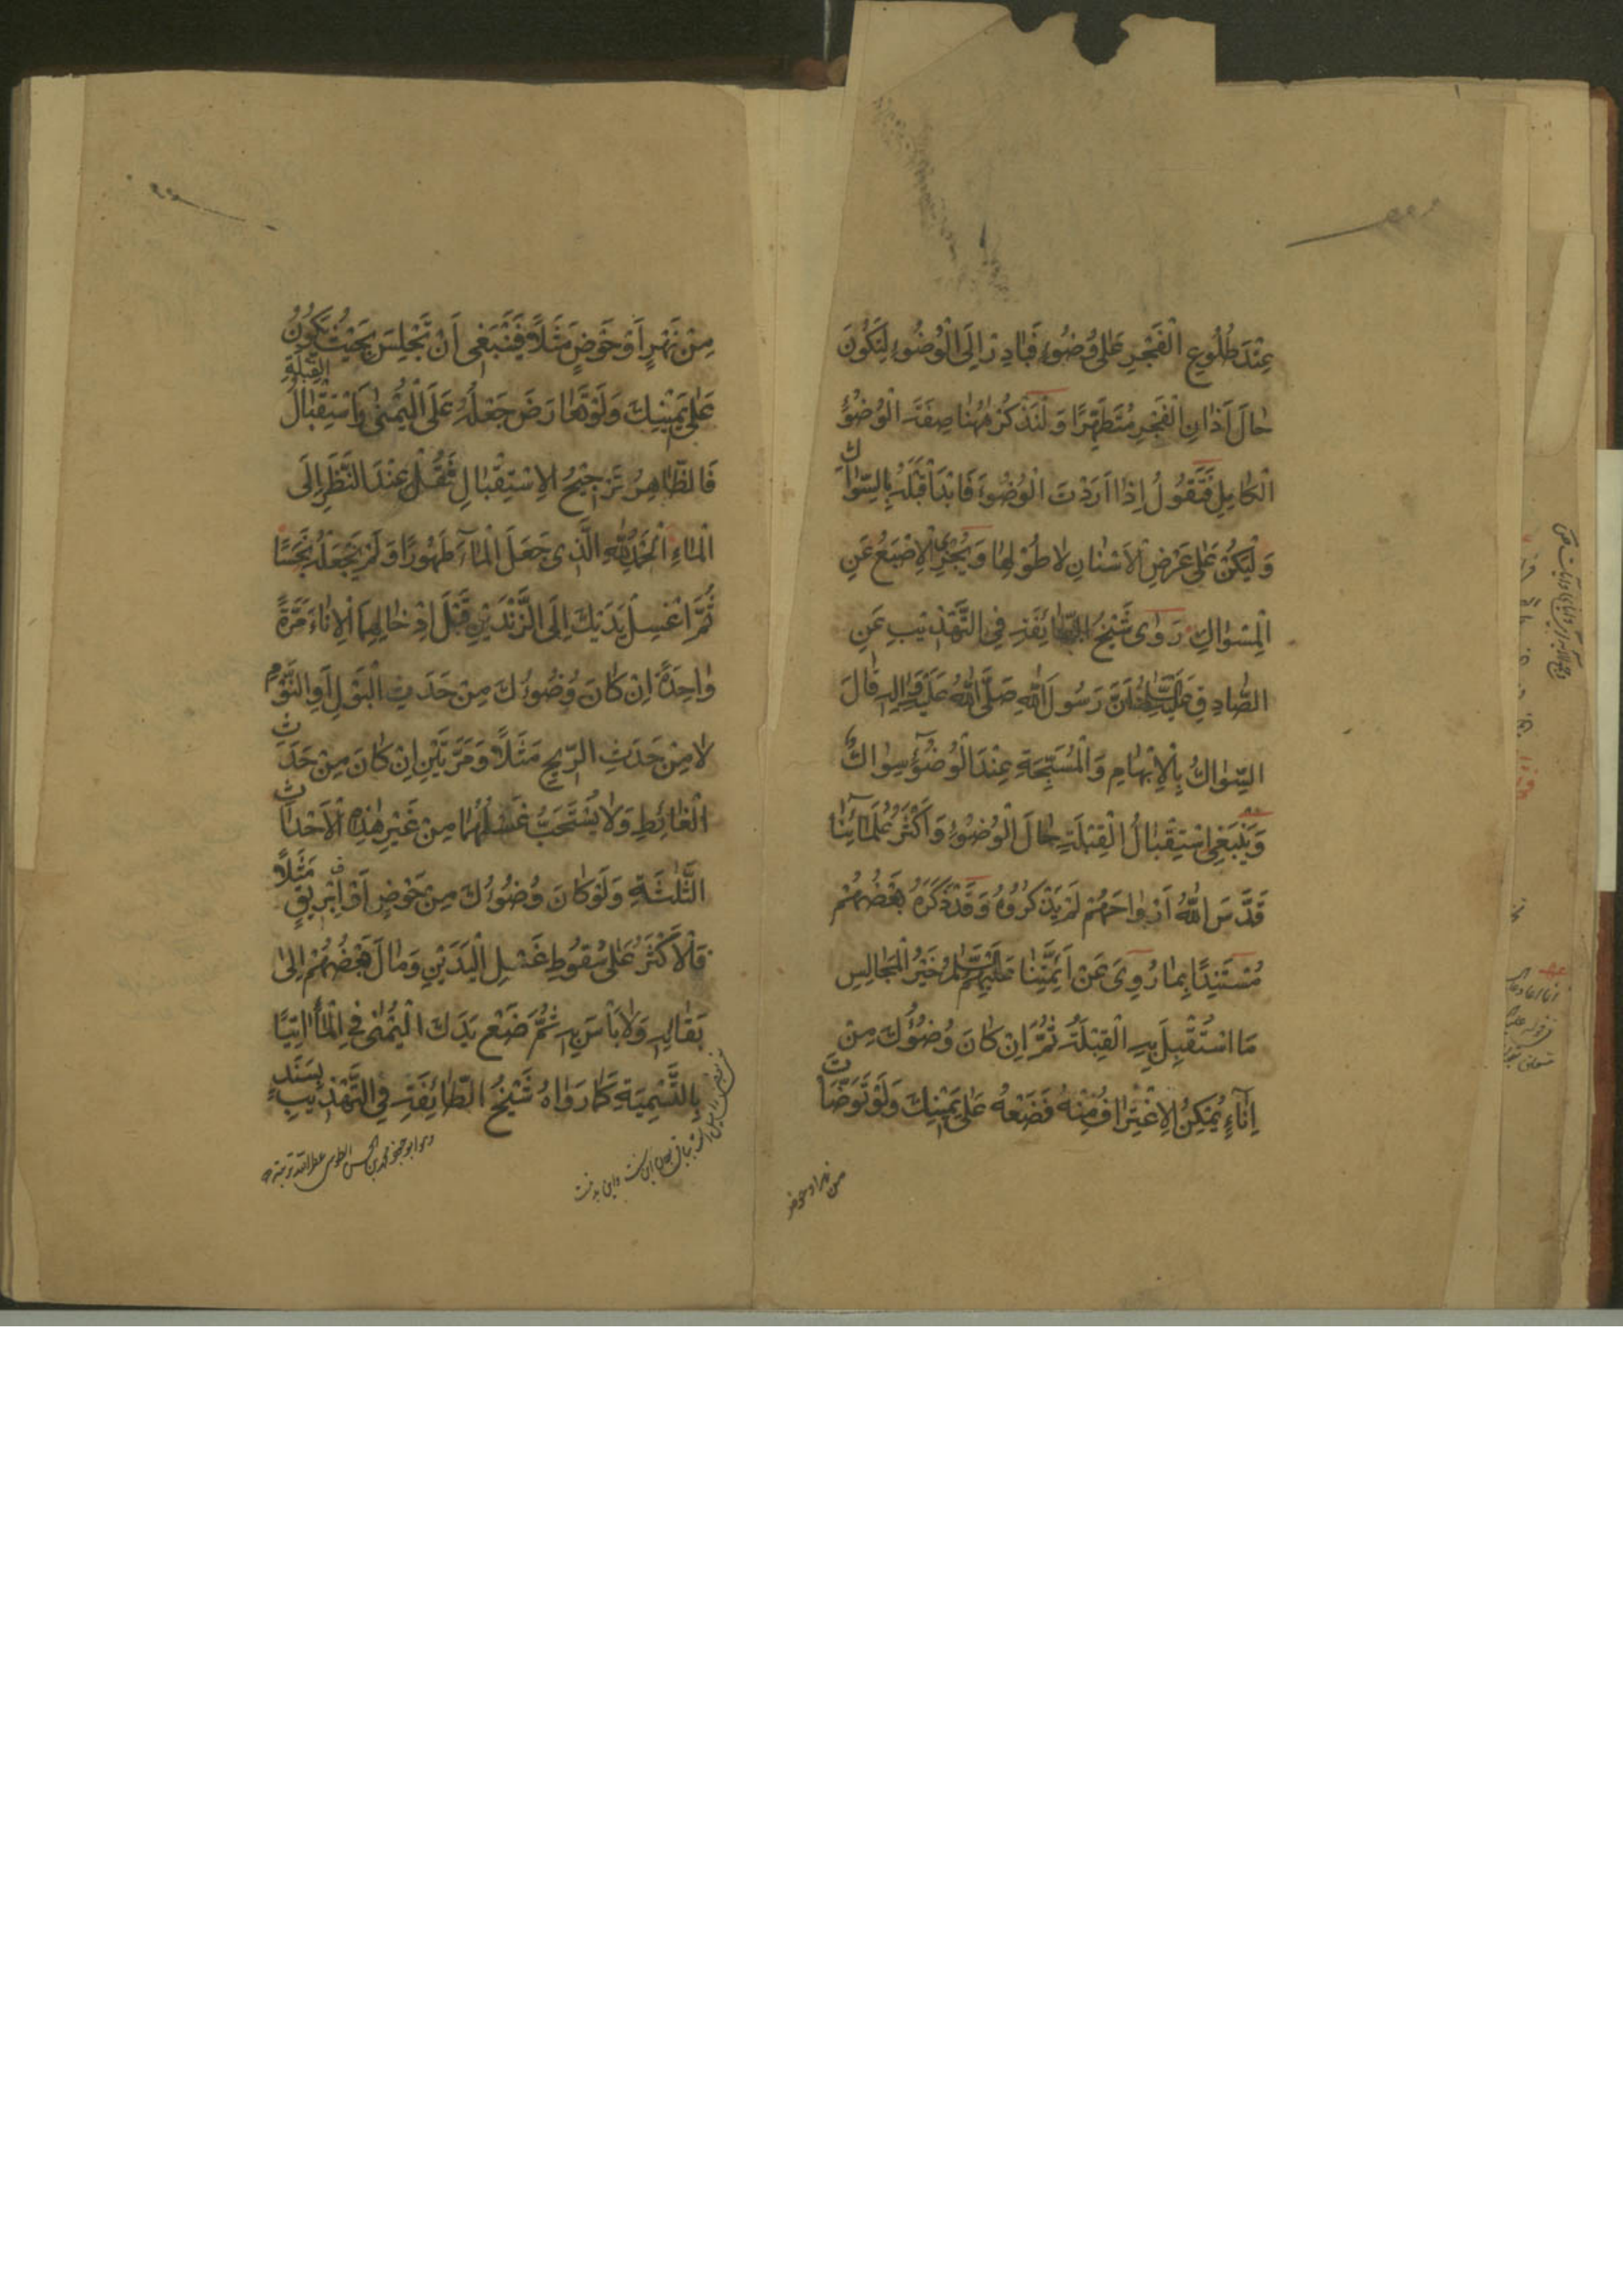 عِنْدَ طُلُوعِ الْفَجْرِ عَلٰى وُضُوءٍ فَبَادِرْ اِلَى الْوُضُوءِ لِتَكُونَ
حٰالَ اَذٰانِ الْفَجْرِ مُتَطَهِّرًا وَلْنَذْكُرْ هٰهُنٰا صِفَةَ الْوُضُوءِ
الْكٰامِلِ فَنَقُولُ اِذٰا اَرَدْتَ الْوُضُوءَ فَابْدَأْ قَبْلَهُ بِالسِّوٰاكِ
وَلْيَكُنْ عَلٰى عَرْضِ الْاَسْنٰانِ لٰا طُوْلِهٰا وَيُجْزِى الْاِصْبَعُ عَنِ
الْمِسْوٰاكِ رَوٰى شَيْخُ الطّٰائِفَةِ فِى التَّهْذِيْبِ عَنِ
الصّٰادِقِ عَلَيْهِ السَّلٰامُ اَنَّ رَسُولَ اللّٰهِ صَلَّى اللّٰهُ عَلَيْهِ وَاٰلِهِ قٰالَ
السِّوٰاكُ بِالْاِبْهٰامِ وَالْمُسَبِّحَةِ عِنْدَ الْوُضُوءِ سِوٰاكٌ
وَيَنْبَغِى اسْتِقْبٰالُ الْقِبْلَةِ حٰالَ الْوُضُوءِ وَاَكْثَرُ عُلَمٰائِنٰا
قَدَّسَ اللّٰهُ اَرْوٰاحَهُمْ لَمْ يَذْكُرُوهُ وَقَدْ ذَكَرَهُ بَعْضُهُمْ
مُسْتَنِدًا بِمٰا رُوِىَ عَنْ اَئِمَّتِنٰا عَلَيْهِمُ السَّلٰامُ خَيْرُ الْمَجٰالِسِ
مَا اسْتُقْبِلَ بِهِ الْقِبْلَةُ ثُمَّ اِنْ كٰانَ وُضُوءُكَ مِنْ
اِنٰاءٍ يُمْكِنُ الْاِغْتِرٰافُ مِنْهُ فَضَعْهُ عَلٰى يَمِيْنِكَ وَلَوْ تَوَضَّأْتَ
من نهر او حوض
مِنْ نَهْرٍ اَوْ حَوْضٍ مَثَلًا فَيَنْبَغِى اَنْ تَجْلِسَ بِحَيْثُ يَكُونُ
عَلٰى يَمِيْنِكَ وَلَوْ تَعٰارَضَ جَعْلُهُ عَلَى الْيُمْنٰى وَاسْتِقْبٰالُ الْقِبْلَةِ
فَالظّٰاهِرُ تَرْجِيْحُ الْاِسْتِقْبٰالِ ثُمَّ قُلْ عِنْدَ النَّظَرِ اِلَى
الْمٰاءِ اَلْحَمْدُ لِلّٰهِ الَّذِى جَعَلَ الْمٰاءَ طَهُورًا وَلَمْ يَجْعَلْهُ نَجَسًا
ثُمَّ اغْسِلْ يَدَيْكَ اِلَى الزَّنْدَيْنِ قَبْلَ اِدْخٰالِهِمَا الْاِنٰاءَ مَرَّةً
وٰاحِدَةً اِنْ كٰانَ وُضُوءُكَ مِنْ حَدَثِ الْبَوْلِ اَوِ النَّوْمِ
لٰا مِنْ حَدَثِ الرِّيْحِ مَثَلًا وَمَرَّتَيْنِ اِنْ كٰانَ مِنْ حَدَثِ
الْغٰائِطِ وَلٰا يُسْتَحَبُّ غَسْلُهُمٰا مِنْ غَيْرِ هٰذِهِ الْاَحْدٰاثِ
الثَّلٰثَةِ وَلَوْ كٰانَ وُضُوءُكَ مِنْ حَوْضٍ اَوْ اِبْرِيْقٍ مَثَلًا
فَالْاَكْثَرُ عَلٰى سُقُوطِ غَسْلِ الْيَدَيْنِ وَمٰالَ بَعْضُهُمْ اِلٰى
بَقٰائِهِ وَلٰا بَأْسَ بِهِ ثُمَّ ضَعْ يَدَكَ الْيُمْنٰى فِى الْمٰاءِ اٰتِيًا
بِالتَّسْمِيَةِ كَمٰا رَوٰاهُ شَيْخُ الطّٰائِفَةِ فِى التَّهْذِيْبِ بِسَنَدٍ
وهو ابو جعفر محمد بن الحسن الطوسى عطر الله تربته